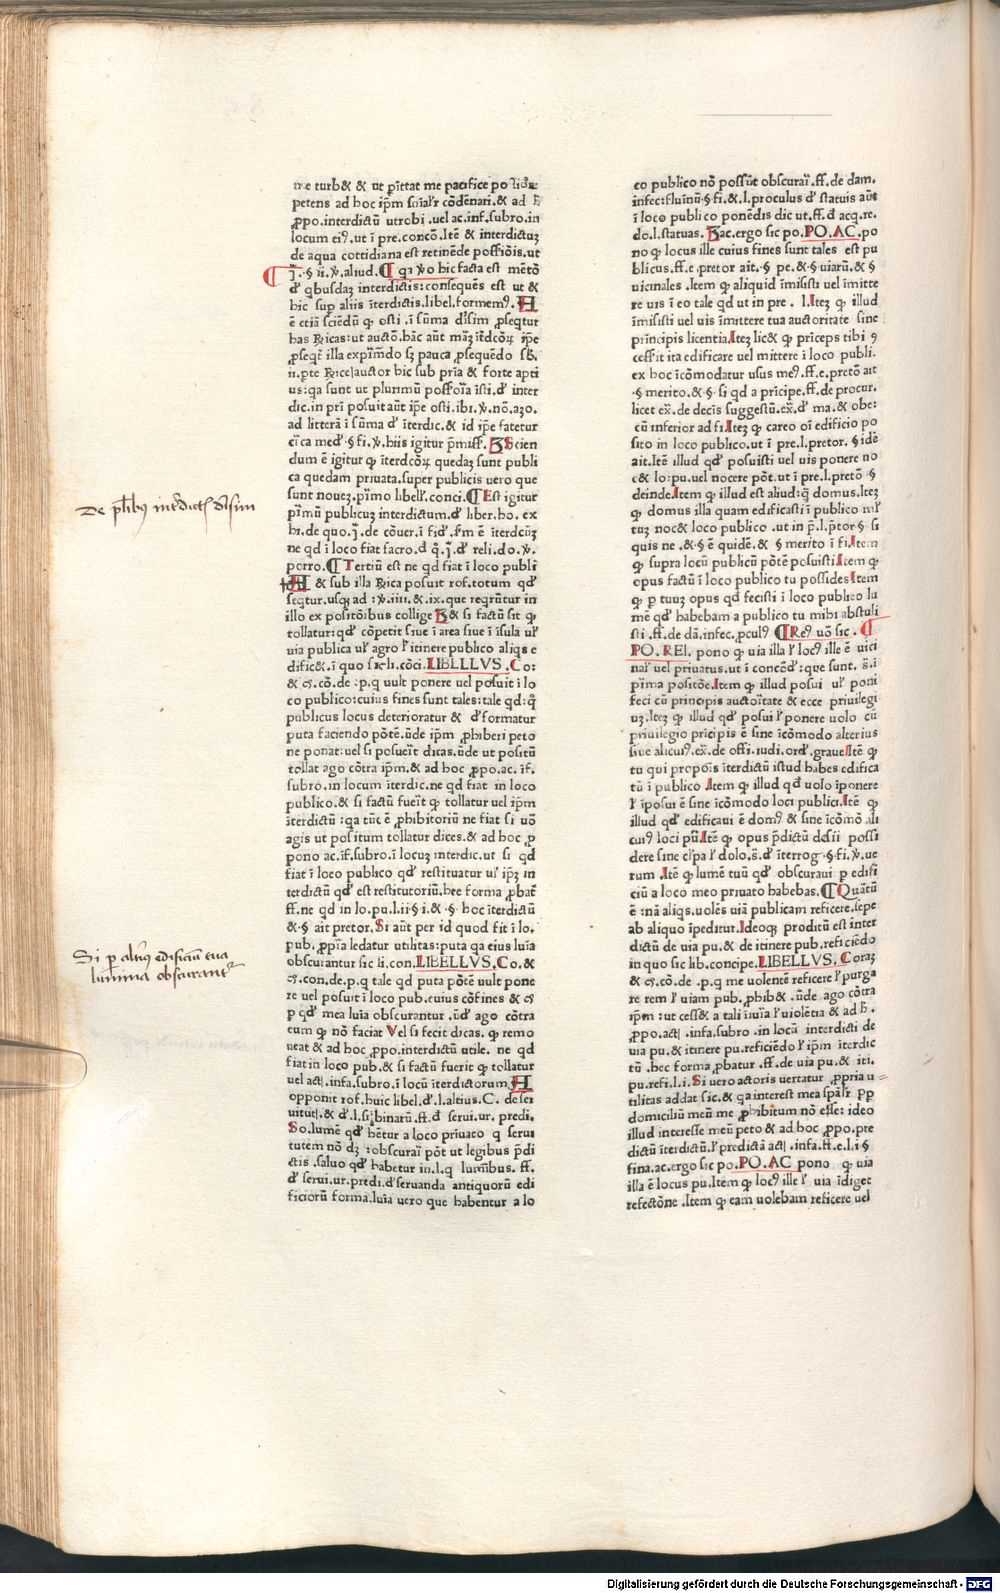 ne turb& & ut p̄ittat me pacifice
petens ad hoc ip̄m
ꝓpo.interdictū utrobi .uel ac.inf.subro.in
locum eiꝰ.ut ī pre.concō.Itē & interdictuꝫ
de aqua cottidiana est retinēde possiōis.ut
ꝟ.aliud. ¶ qa ꝟo hic facta est mētō
d̓ qbusdaꝫ interdictis:consequēs est ut &
hic sup aliis īterdictis.libel.formemꝰ.
ē etiā sciēdū qꝫ osti .ī sūma
ꝓseqē illa expīmdo sꝫ pauca ꝓsequēdo
us:qa sunt ut plurimū
ad litterā ī sūma d̓ īterdic.& id ip̄e fatetur
dum ē igitur qꝫ īterdcōꝝ quedaꝫ sunt publi
ca quedam priuata.super publicis uero que
sunt noueꝫ.p̄imo libell̓.conci.¶ Est igitur
p̄imū publicuꝫ interdictum.d̓ liber.ho. ex
ne qd ī loco fiat sacro.
porro.¶ Tertiū est ne qd fiat ī loco publi
& sub illa Rrica posuit rof.totum qd̓
illo ex positōibus collige & si factū sit qꝫ
tollatur:qd̓ cōpetit siue ī area siue ī īsula ul̓
uia publica ul̓ agro l̓ itinere publico aliqs e
dific&.ī quo sic li.cōci.LIBELLVS.Co:
& cꝭ.cō.de :p.q uult ponere uel posuit ī lo
co publico:cuius fines sunt tales:tale qd:q̄
publicus locus deterioratur & d̓formatur
puta faciendo pōtē.ūde ip̄m ꝓhiberi peto
ne ponat:uel si posueīt dicas.ūde ut positū
tollat ago cōtra ip̄m.& ad hoc ꝓpo.ac.īf.
subro.in locum īterdic.ne qd fiat in loco
publico.& si factū fueīt qꝫ tollatur uel ip̄m
īterdictū :qa tūc ē ꝓhibitoriū ne fiat si uō
agis ut positum tollatur dices.& ad hoc ꝓ
pono ac.īf.subro.ī locuꝫ interdic.ut si qd
fiat ī loco publico qd̓ restituatur ul̓ ip̄ꝫ in
terdictū qd̓ est restitutoriū.hec forma ꝓbat̄
ff.ne qd in lo.pu.l.ii § i.& .§. hoc īterdictū
& § ait pretor.Si aūt per id quod fit ī lo.
pub.ꝓpīa ledatur utilitas:puta qa eius luīa
obscurantur sic li.con.LIBELLVS.Co.&
cꝭ.con.de.p.q tale qd puta pōtē uult pone
re uel posuit ī loco pub.cuius cōfines & cꝭ
p qd̓ mea luīa obscurantur .ūd̓ ago cōtra
eum qꝫ nō faciat Vel si fecit dicas. qꝫ remo
ueat & ad hoc ꝓpo.interdictū utile. ne qd
fiat in loco pub.& si factū fuerit qꝫ tollatur
uel act.infa.subro.ī locū īterdictorum.
opponit rof.huic libel.d̓.l.altius.C. de ser
So.lumē qd̓ hētur a loco priuato q serui
tutem nō dꝫ :obscuraī pōt ut legibus p̄di
ctis .saluo qd̓ habetur in.l.q luminibus. ff.
d̓ serui.ur.predi.d̓ seruanda antiquorū edi
ficiorū forma.luīa uero que habentur a lo
De pl̄ibꝰ
Si p altiꝰ edificiū tua
lumina obscurant̄
co publico nō possūt obscuraī.ff.de dam.
infec:fluīnū § fi.& .l.proculus d̓ statuis aūt
ī loco publico ponēdis dic ut.ff.d̓ acq.re.
do.l.statuas. ac.ergo sic po.PO.AC.po
no qꝫ locus ille cuius fines sunt tales est pu
blicus.ff.e.pretor ait.§ pe.& § uiarū.& §
uicinales .Item qꝫ aliquid īmisisti uel īmitte
re uis ī eo tale qd ut in pre . l.Iteꝫ qꝫ illud
īmisisti uel uis īmittere tua auctoritate sine
pīincipis licentia.Iteꝫ lic& qꝫ pīceps tibi ꝯ
cessīt ita edificare uel mittere ī loco publi.
ex hoc īcōmodatur usus meꝰ.ff.e.pretō ait
§ merito.& §. si qd a pīincipe.ff.de procur.
licet ex̄.de decīs suggestū.ex̄.d̓ ma.& obe:
cū inferior ad fi.Iteꝫ qꝫ careo oī edificio po
sito in loco publico.ut ī pre.l.pretor. § idē
ait.Itē illud qd̓ posuisti uel uis ponere no
c& lo:pu.uel nocere pōt.ut ī pre.l.pretō §
deinde.Item qꝫ illud est aliud:q̄ domus.Iteꝫ
qꝫ domus illa quam edificasti ī publico
tuꝫ noc& loco publico .ut in p̄.l.p̄tor § si
quis ne .& § ē quidē.& § merito ī fi.Item
qꝫ supra locū publicū pōtē posuisti.Item qꝫ
opus factū ī loco publico tu possides Item
qꝫ p tuuꝫ opus qd̓ fecisti ī loco publico lu
mē qd̓ habebam a publico tu mihi abstuli
sti .ff.de dā.infec.ꝓculꝰ ¶ Reꝰ uō sic . ¶
PO. REI. pono qꝫ uia illa l̓ locꝰ ille ē uici
nal̓ uel priuatus.ut ī concēd̓:que sunt. s̄.ī
p̄ima positōe.Item qꝫ illud posui ul̓ poni
feci cū principis auctoītate & ecce priuilegi
uꝫ.Iteꝫ qꝫ illud qd̓ posui l̓ ponere uolo cū
priuilegio pīcipis ē sine īcōmodo alterius
siue alicuiꝰ.ex̄.de offi.iudi.ord̓.graue.Itē qꝫ
tu qui propōis īterdictū istud habes edifica
tū ī publico .Item qꝫ illud qd̓ uolo īponere
l̓ īposui ē sine īcōmodo loci publici.Itē qꝫ
illud qd̓ edificaui ē domꝰ & sine īcōmō ali
cuiꝰ loci pū.Itē qꝫ opus p̄dictū desii possi
dere sine cl̓pa l̓ dolo.s̄.d̓ īterrog.§ fi.ꝟ.ue
rum .Itē qꝫ lumē tuū qd̓ obscuraui p edifi
ciū a loco meo priuato habebas.¶ Quātū
ē :nā aliqs.uolēs uiā publicam reficere.sepe
ab aliquo īpeditur.Ideoqꝫ proditū est inter
dictū de uia pu.& de itinere pub.reficiēdo
in quo sic lib.concipe.LIBELLVS. Coraꝫ
& cꝭ.cō.de .p.q me uolente reficere l̓ purga
re rem l̓ uiam pub.ꝓhib& .ūde ago cōtra
ip̄m :ut cess& a tali iīuīa l̓ uioletīa & ad h̄.
ꝓpo.act .infa.subro .in locū interdicti de
uia pu.& itinere pu.reficiēdo l̓ ip̄m īterdic
tū .hec forma ꝓbatur .ff.de uia pu.& iti.
pu.refi.l.i.Si uero actoris uertatur ꝓpria u
tilitas addat sic.& qa interest mea sp̄ālī pp
domiciliū meū me ꝓhibitum nō esse: ideo
illud interesse meū peto & ad hoc ꝓpo.pre
dictū īterdictū.l̓ predictā act .infa.ff.e.l.i §
fina.ac.ergo sic po.PO.AC pono qꝫ uia
illa ē locus pu.Item qꝫ locꝰ ille l̓ uia īdiget
refectōne .Item qꝫ eam uolebam reficere uel
Digitalisierung gefördert durch die Deutsche Forschungsgemeinschaft - DFG